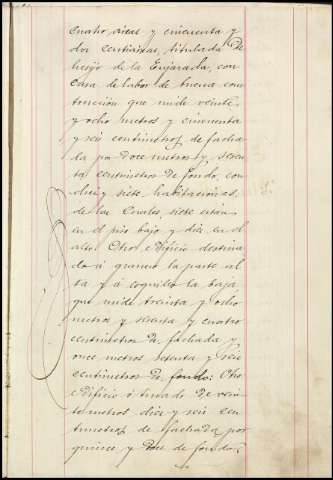 cuatro áreas y cincuenta y
dos centiáreas, titulada De
hesijo de la Enjarada, con
casa de labor de buena cons
trucción que mide veinte
y ocho metros y cincuenta
y seis centimetros de facha
da por Doce metros y sesen
ta centimetros de fondo, con
diez y siete habitaciones,
de las cuales, siete están
en el piso bajo y diez en el
alto. Otro edificio destina
do á granero la parte al
ta y á la baja
que mide treinta y ocho
metros y sesenta y cuatro
centimetros de fachada y
once metros setenta y seis
centimetros de fondo: Otro
edificio ó tinado de vein
te metros diez y seis cen
timetros de fachada por
quince y Doce de fondo,